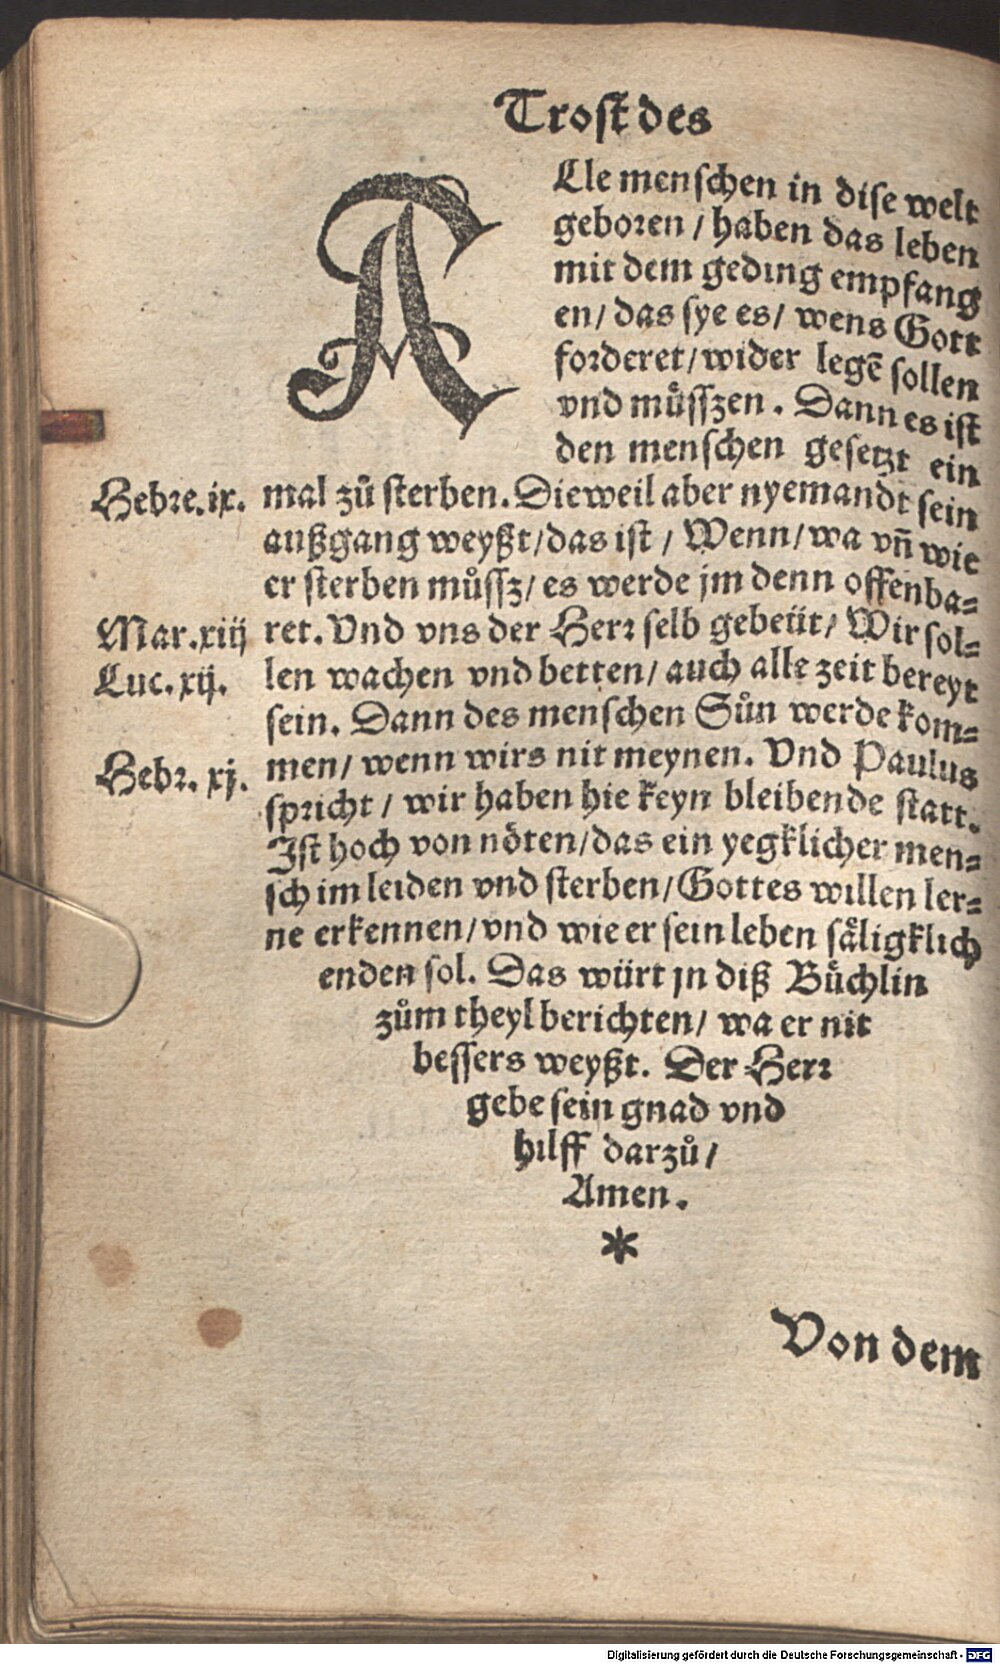 Trost des
ALle menschen in dise welt
geboren / haben das leben
mit dem geding empfang
en / das sye es / wens Gott
forderet / wider legẽ sollen
vnd muͤsszen. Dann es ist
den menschen gesetzt ein
Hebre. ix. mal zuͦ sterben. Dieweil aber nyemandt sein
außgang weyßt / das ist / Wenn / wa vn̄ wie
er sterben muͦssz / es werde jm denn offenba⸗
Mar. xiij ret. Vnd vns der Herr selb gebeüt / Wir sol⸗
Luc. xij. len wachen vnd betten / auch alle zeit bereyt
sein. Dann des menschen Suͦn werde kom⸗
Hebr. xj. men / wenn wirs nit meynen. Vnd Paulus
spricht / wir haben hie keyn bleibende statt.
Ist hoch von nöten / das ein yegklicher men⸗
sch im leiden vnd sterben / Gottes willen ler⸗
ne erkennen / vnd wie er sein leben säligklich
enden sol. Das würt jn diß Buͤchlin
zuͦm theyl berichten / wa er nit
bessers weyßt. Der Herr
gebe sein gnad vnd
hilff darzuͦ /
Amen.
*
Von dem
Digitalisierung gefördert durch die Deutsche Forschungsgemeinschaft - DFG